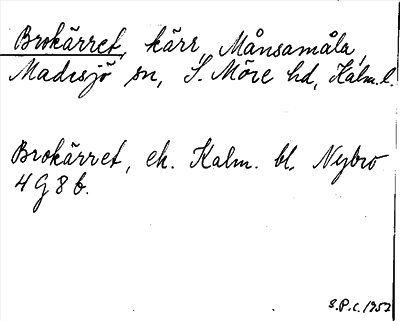 Brokärret, kärr, Månsamåla,
Madesjö sn, S. Möre hd, Kalm. l.
Brokärret, ek. Kalm. bl. Nybro
4 G 8 b.
S.P.C. 1952